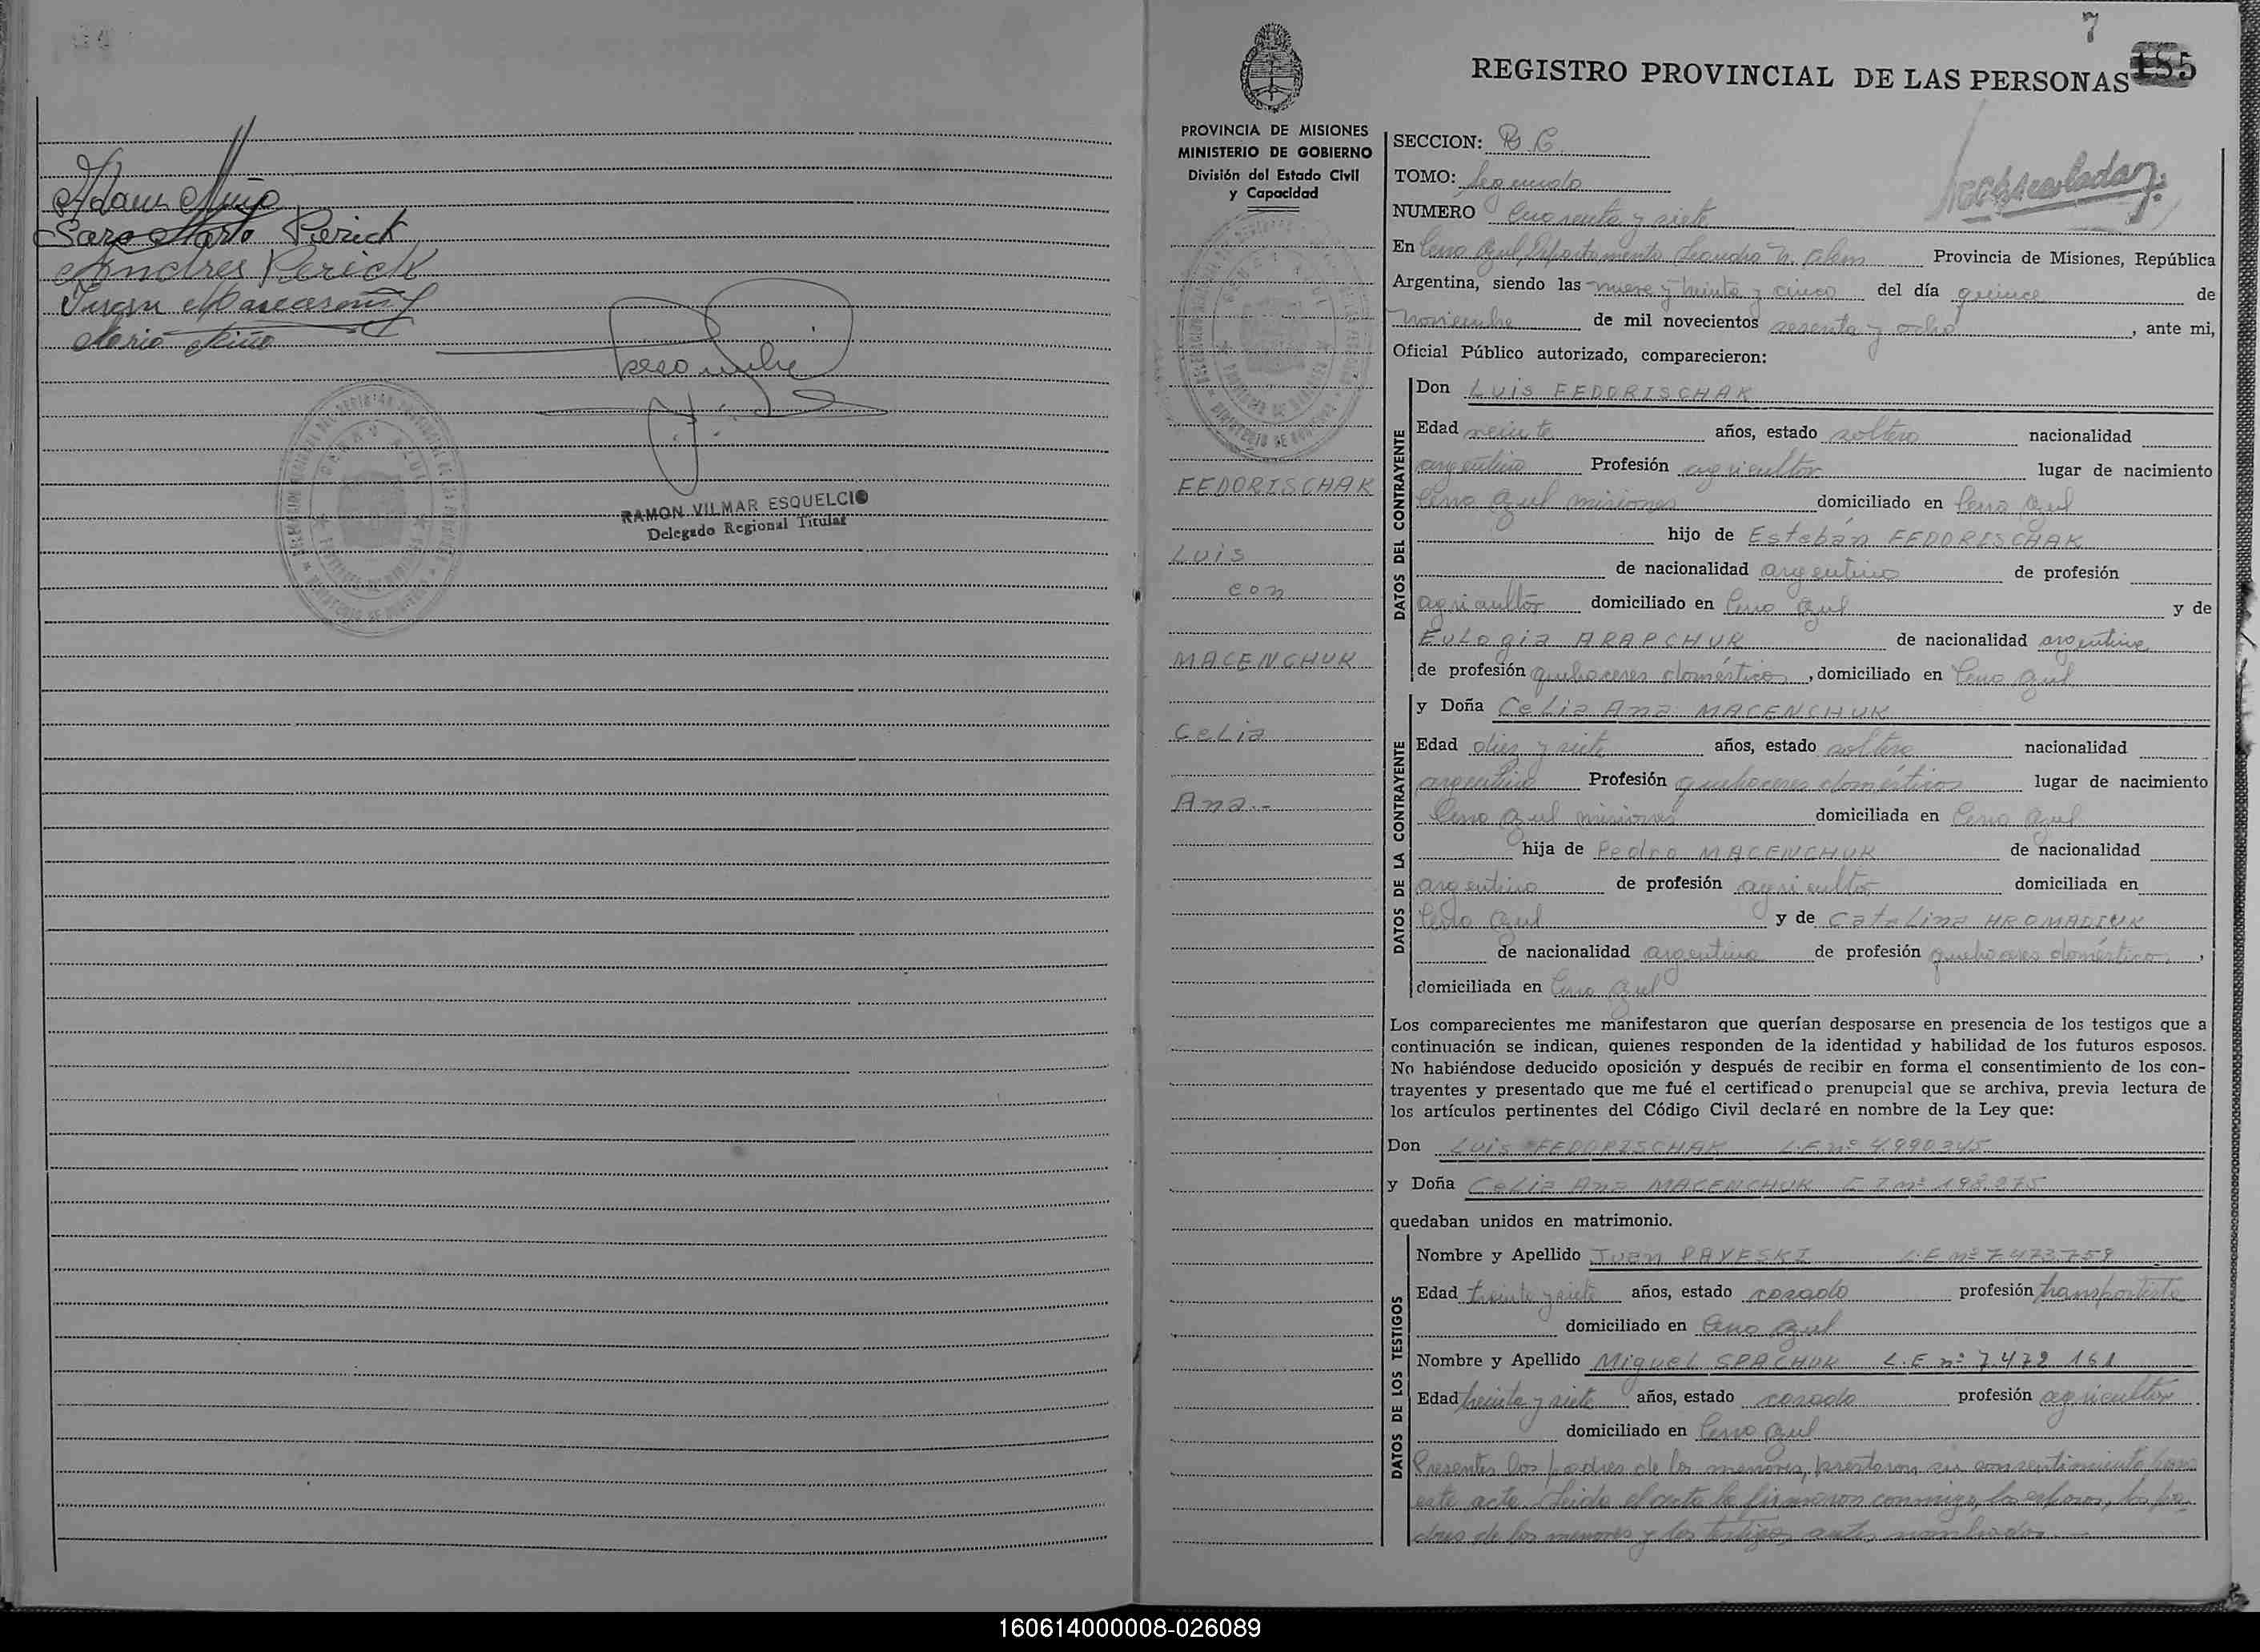 Adam Niño
Sara Marta Perick
Andres Perick
Juan
Mario Niño
RAMON VILMAR ESQUELCIO
Delegado Regional Titular
7
REGISTRO PROVINCIAL DE LAS PERSONAS
185
PROVINCIA DE MISIONES
MINISTERIO DE GOBIERNO
División del Estado Civil
y Capacidad
FEDORISCHAK
Luis
con
MACENCHUK
Celia
Ana.-
SECCION:
TOMO: Segundo
NUMERO Cuarenta y siete
En Cerro Azul, Departamento Leandro N. Alem Provincia de Misiones, República
Argentina, siendo las nueve y treinta y cinco del día quince de
noviembre de mil novecientos sesenta y ocho, ante mi,
Oficial Público autorizado, comparecieron:
DATOS DEL CONTRAYENTE
Don Luis FEDORISCHAK
Edad veinte años, estado soltero nacionalidad
argentino Profesión agricultor lugar de nacimiento
Cerro Azul misiones domiciliado en Cerro Azul
hijo de Esteban FEDORISCHAK
de nacionalidad argentino de profesión
agricultor domiciliado en Cerro Azul y de
Eulogia ARAPCHUK de nacionalidad argentina
de profesión quehaceres domésticos, domiciliado en Cerro Azul
DATOS DE LA CONTRAYENTE
y Doña Celia Ana MACENCHUK
Edad diez y siete años, estado soltera nacionalidad
argentina Profesión quehaceres domésticos lugar de nacimiento
Cerro Azul misiones domiciliada en Cerro Azul
hija de Pedro MACENCHUK de nacionalidad
argentino de profesión agricultor domiciliada en
Cerro Azul y de Catalina HROMADIUK
de nacionalidad argentina de profesión quehaceres domésticos,
domiciliada en Cerro Azul
Los comparecientes me manifestaron que querían desposarse en presencia de los testigos que a
continuación se indican, quienes responden de la identidad y habilidad de los futuros esposos.
No habiéndose deducido oposición y después de recibir en forma el consentimiento de los con-
trayentes y presentado que me fué el certificado prenupcial que se archiva, previa lectura de
los artículos pertinentes del Código Civil declaré en nombre de la Ley que:
Don Luis FEDORISCHAK L.E.nº 4.990.345
y Doña Celia Ana MACENCHUK C.I nº 198.975
quedaban unidos en matrimonio.
DATOS DE LOS TESTIGOS
Nombre y Apellido Juan PAVESKI L.E nº 7.473.759
Edad treinta y siete años, estado casado profesión transportista
domiciliado en Cerro Azul
Nombre y Apellido Miguel SPACHUK L.E nº 7.472 161
Edad treinta y siete años, estado casado profesión agricultor
domiciliado en Cerro Azul
Presentes los padres de los menores, prestaron su consentimiento para
este acto. Leida el acta la firmaron conmigo, los esposos, los pa-
dres de los menores y los testigos antes nombrados.
160614000008-026089